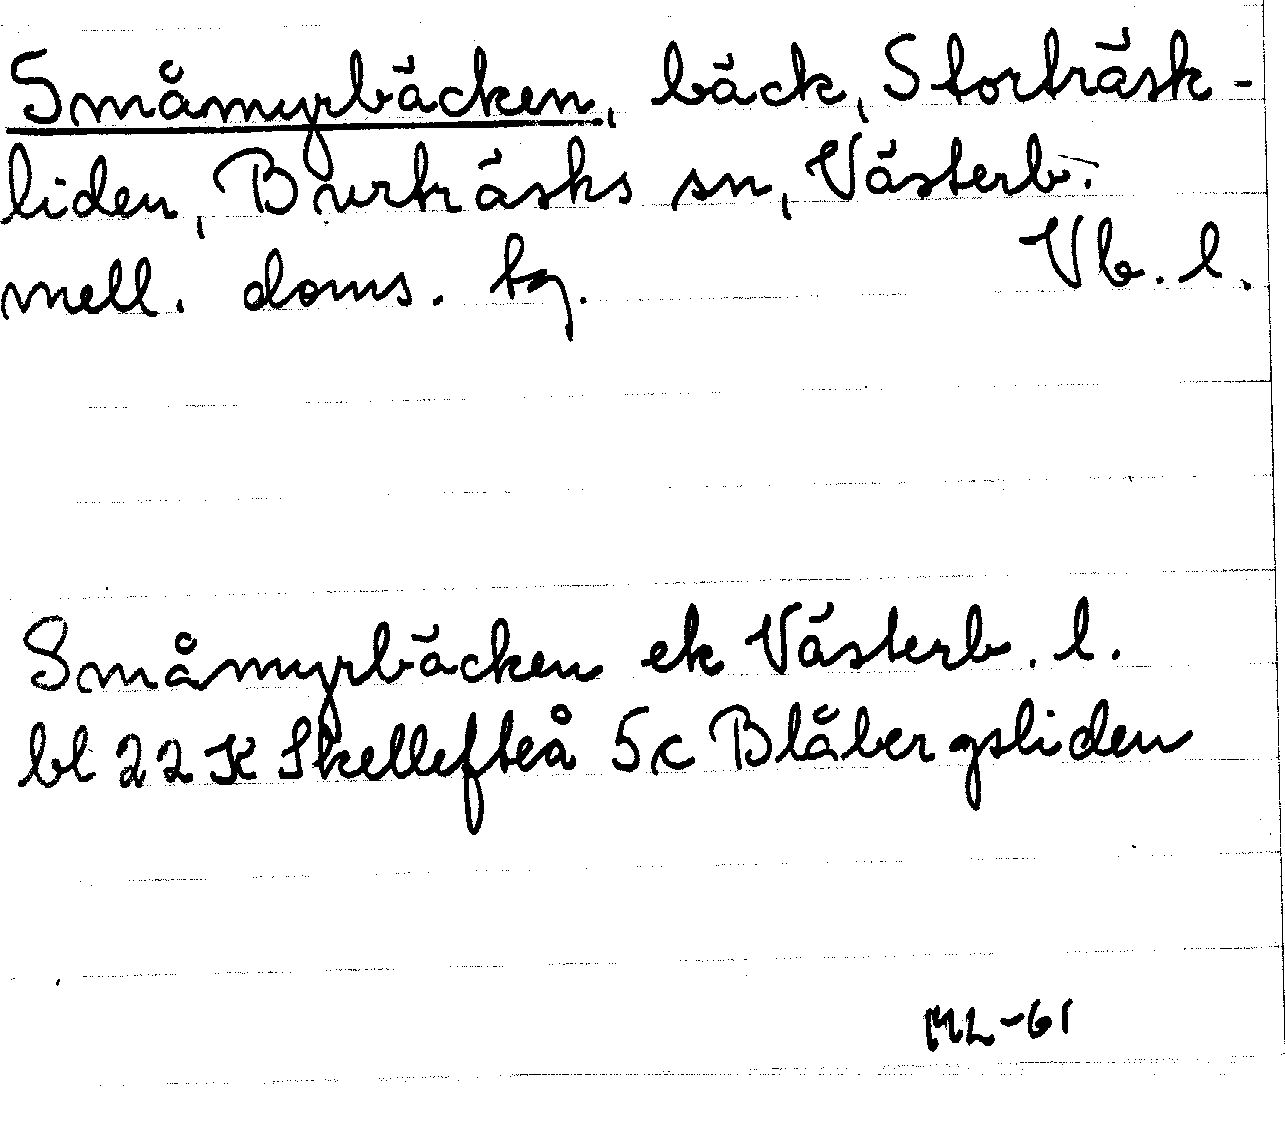 Småmyrbäcken, bäck, Storträsk-
liden, Burträsks sn, Västerb:
mell. doms. tg. Vb. l.
Småmyrbäcken ek Västerb. l.
bl 22 K Skellefteå 5c Blåbergsliden
ML-61